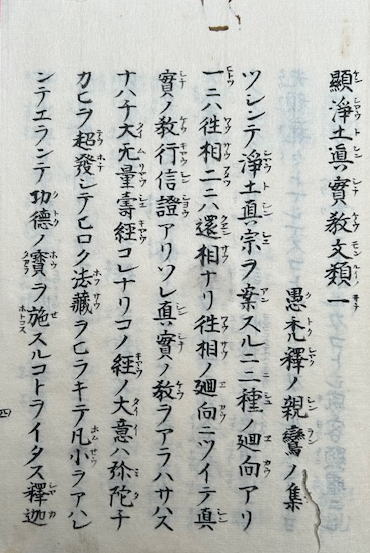 顯淨土眞實教文類一
愚禿釋ノ親鸞ノ集
ツシンテ淨土眞宗ヲ案スルニ二種ノ廻向アリ
一ニハ徃相二ニハ還相ナリ徃相ノ廻向ニツイテ眞
實ノ教行信證アリソレ眞實ノ教ヲアラハサハス
ナハチ大无量壽經コレナリコノ經ノ大意ハ弥陀チ
カヒヲ超發シテヒロク法藏ヲヒラキテ凡小ヲアハレ
ンテエランテ功德ノ寶ヲ施スルコトヲイタス釋迦
四